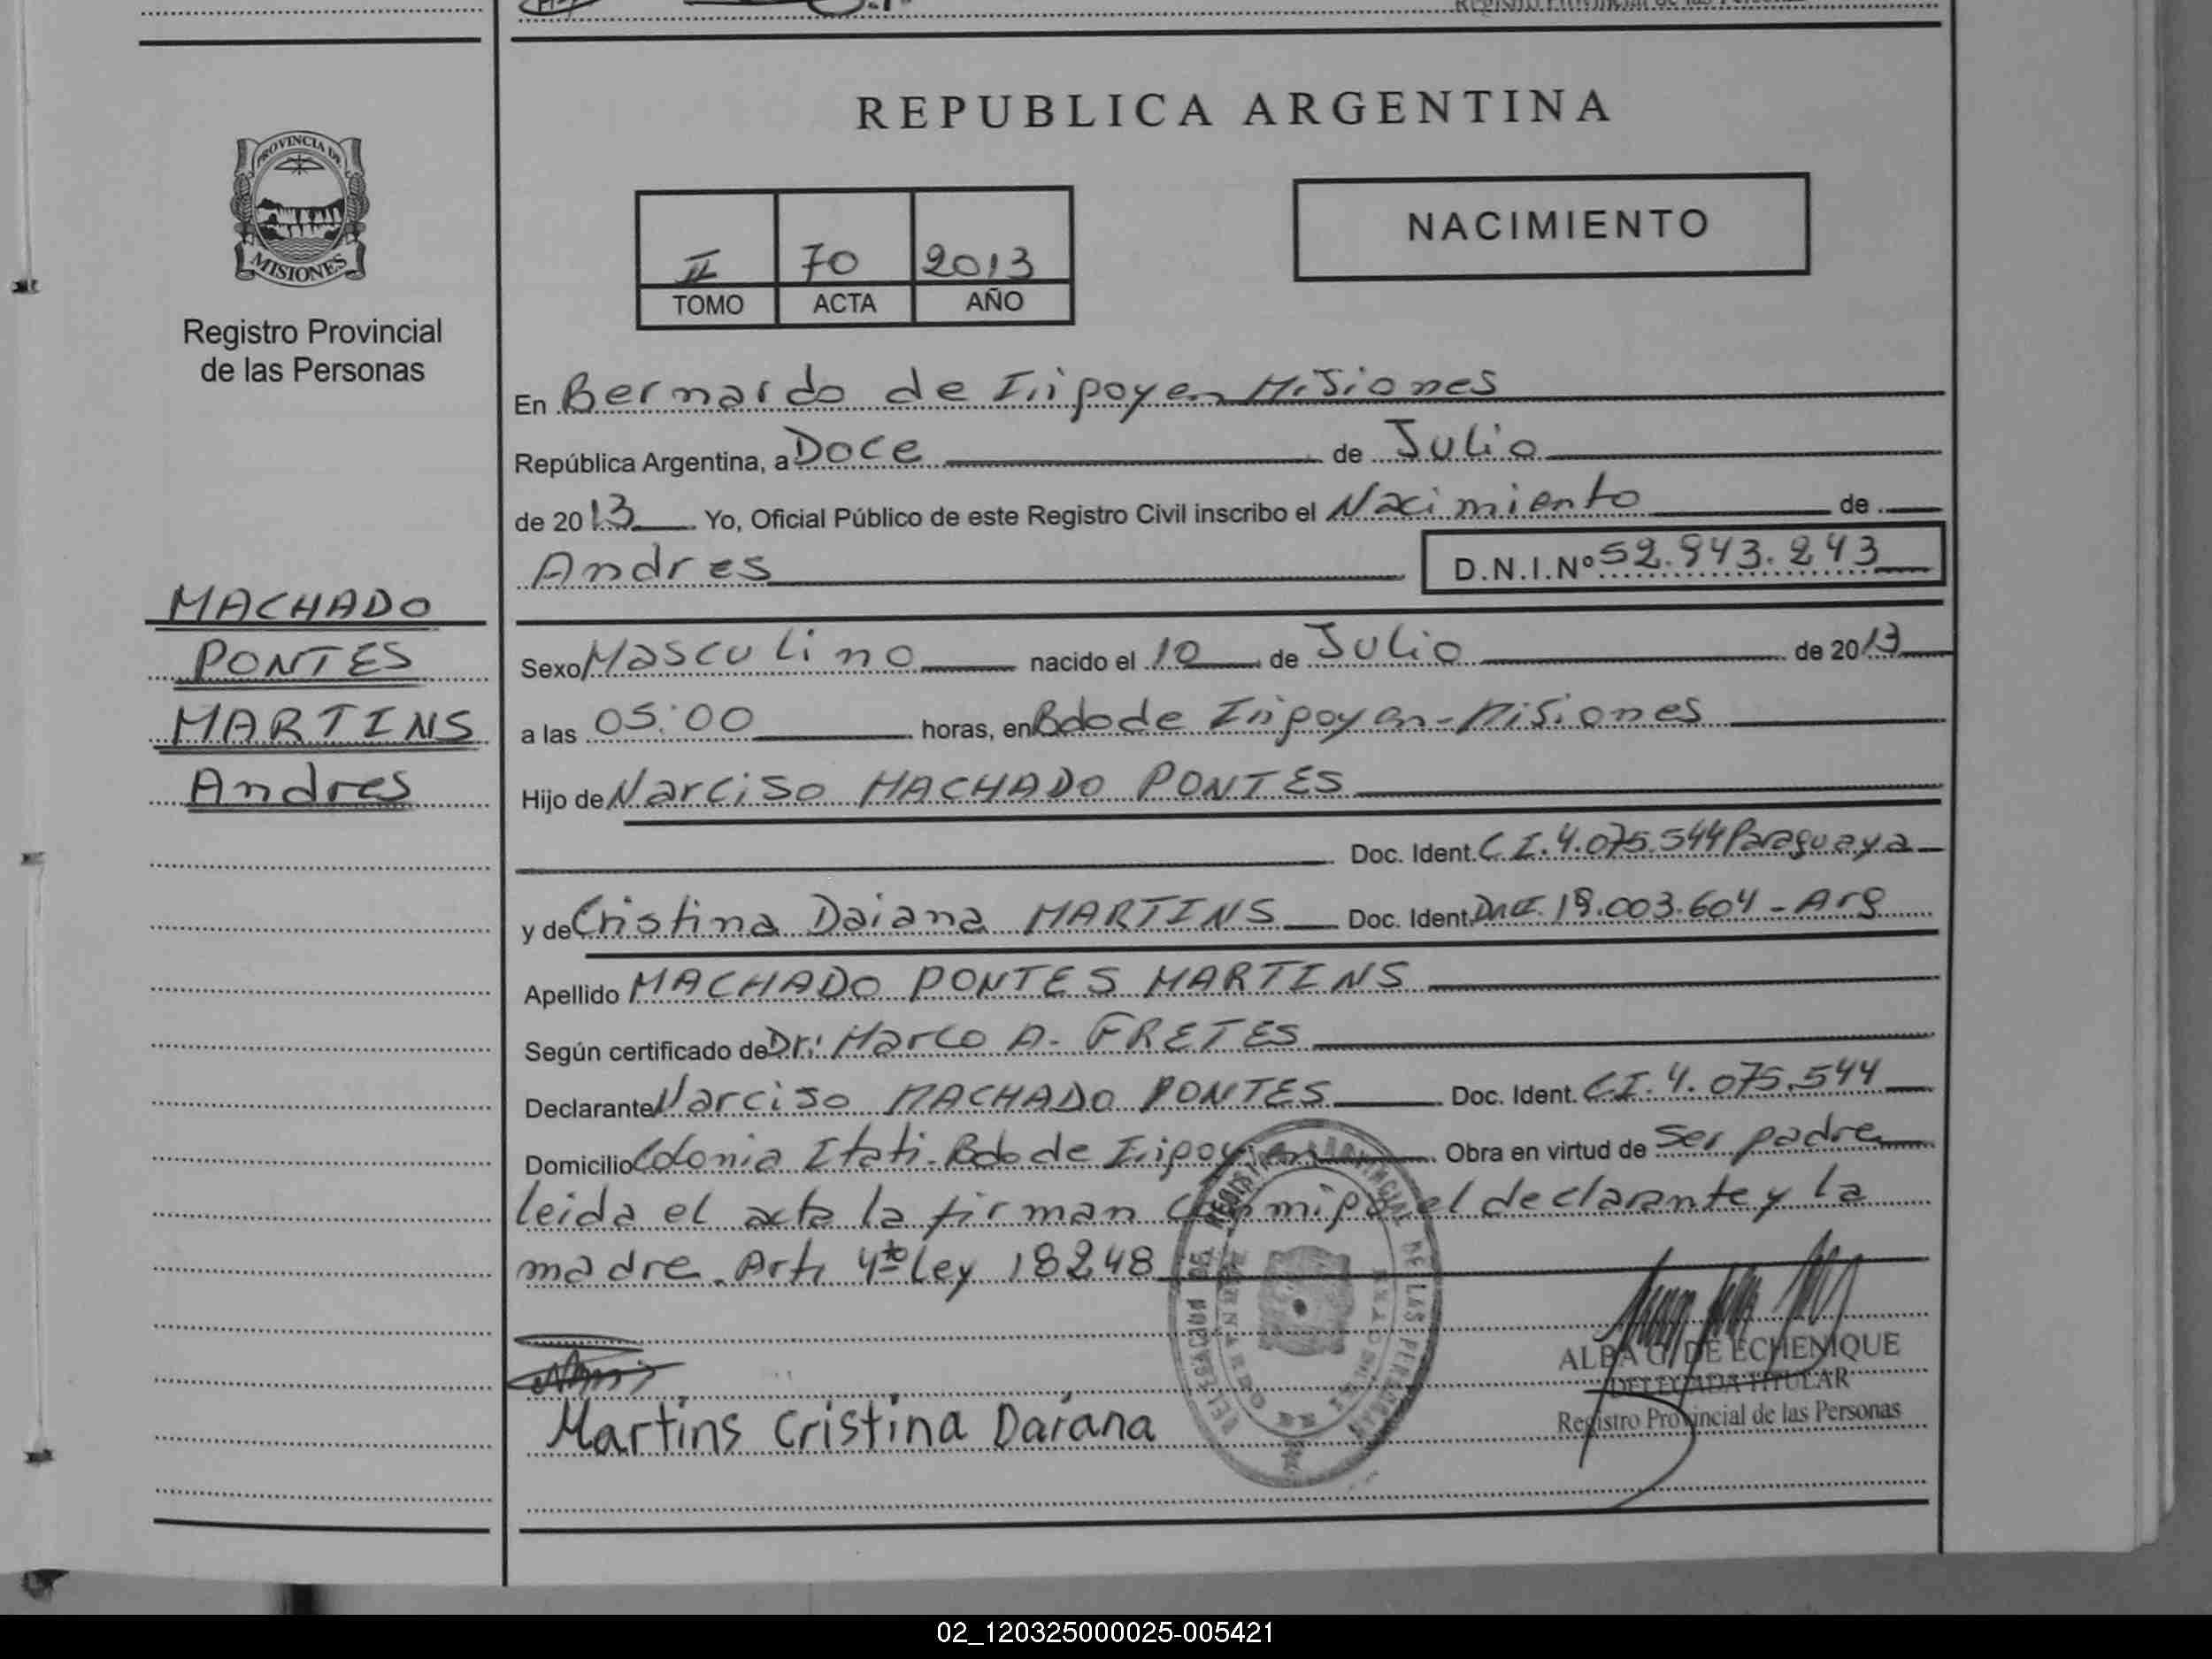 REPUBLICA ARGENTINA
PROVINCIA DE
MISIONES
Registro Provincial
de las Personas
II 70 2013
TOMO ACTA AÑO
NACIMIENTO
En Bernardo de Iripoyen Misiones
República Argentina, a Doce de Julio
de 2013 Yo, Oficial Público de este Registro Civil inscribo el Nacimiento de
Andres D.N.I.Nº 52.943.243
MACHADO
PONTES
MARTINS
Andres
Sexo Masculino nacido el 10 de Julio de 2013
a las 05:00 horas, en Bdo de Iripoyen-Misiones
Hijo de Narciso MACHADO PONTES
Doc. Ident. C.I. 4.075.544 Paraguaya
y de Cristina Daiana MARTINS Doc. Ident. DNI. 19.003.604 - Arg
Apellido MACHADO PONTES MARTINS
Según certificado de Dr: Marco A. FRETES
Declarante Narciso MACHADO PONTES Doc. Ident. C.I. 4.075.544
Domicilio Colonia Itati-Bdo de Iripoyen Obra en virtud de ser padre
leida el acta la firman el declarante y la
madre. Art. 4to Ley 18248
Martins Cristina Daiana
ALBA G. DE ECHENIQUE
DELEGADA TITULAR
Registro Provincial de las Personas
02_120325000025-005421